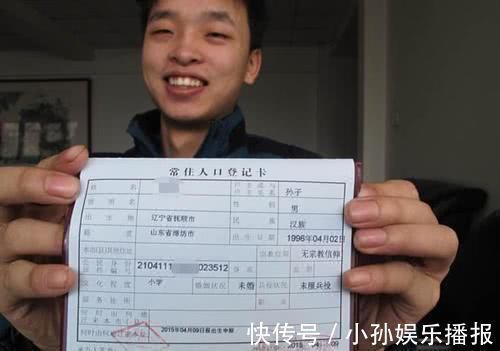 常住人口登记卡
姓名 户主或与户主关系 孙子
曾用名 性别 男
出生地 辽宁省抚顺市 民族 汉族
籍贯 山东省潍坊市 出生日期 1996年04月02日
本市(县)其他住址 宗教信仰 无宗教信仰
2104111 023512 身高
文化程度 小学 婚姻状况 未婚 兵役状况 未服兵役
服务处所
何时由何地迁来本市(县)
何时由何 2015年04月09日报出生申报
快传号 / 小孙娱乐播报